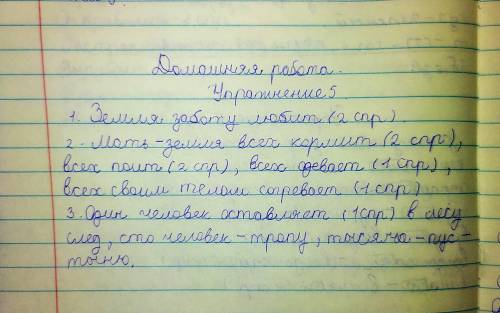 Домашняя работа.
Упражнение 5
1. Земля заботу любит (2 спр)
2. Мать-земля всех кормит (2 спр),
всех поит (2 спр), всех одевает (1 спр),
всех своим телом согревает (1 спр)
3. Один человек оставляет (1 спр) в лесу
след, сто человек - тропу, тысяча - пус-
тыню.